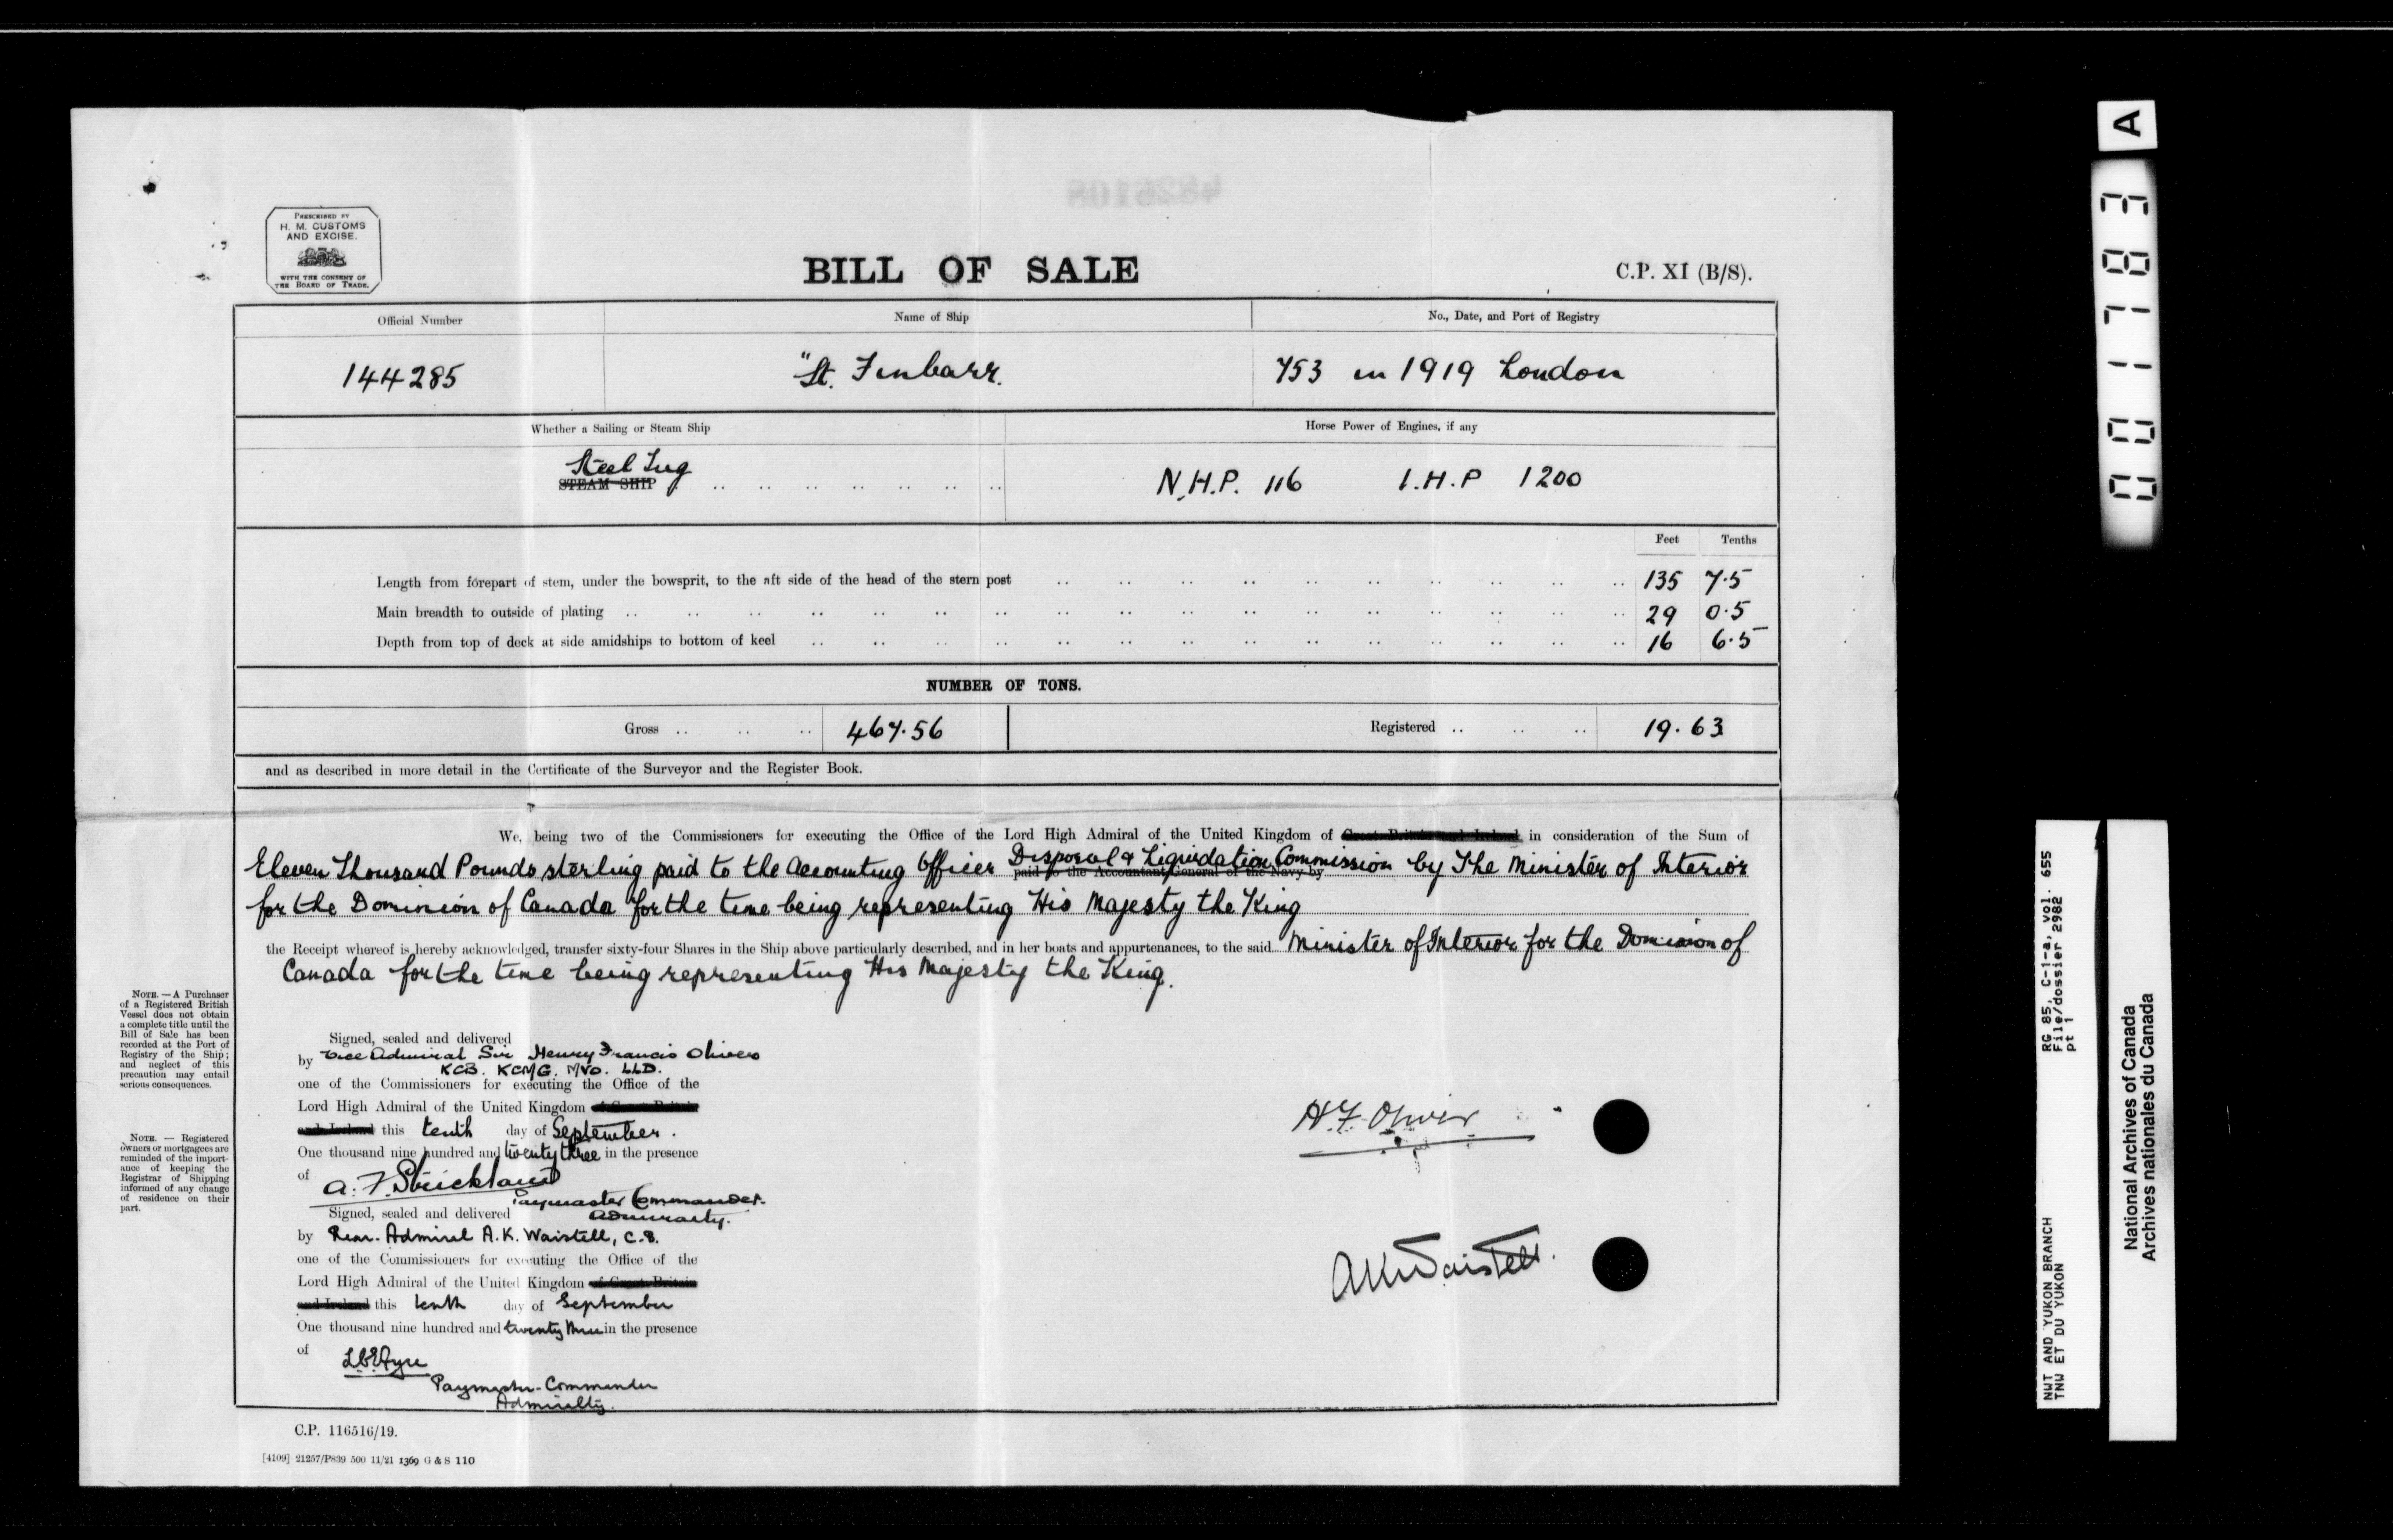 4826108
PRESCRIBED BY
H. M. CUSTOMS
AND EXCISE.
WITH THE CONSENT OF
THE BOARD OF TRADE.
BILL OF SALE
C.P. XI (B/S).
Official Number
Name of Ship
No., Date, and Port of Registry
144285
"St. Finbarr.
753 in 1919 London
Whether a Sailing or Steam Ship
Horse Power of Engines, if any
Steel Tug
STEAM SHIP .. .. .. .. .. .. ..
N.H.P. 116 I.H.P 1200
Feet Tenths
Length from forepart of stem, under the bowsprit, to the aft side of the head of the stern post .. .. .. .. .. .. .. .. .. .. 135 7.5
Main breadth to outside of plating .. .. .. .. .. .. .. .. .. .. .. .. .. .. .. .. .. 29 0.5
Depth from top of deck at side amidships to bottom of keel .. .. .. .. .. .. .. .. .. .. .. .. .. .. 16 6.5
NUMBER OF TONS.
Gross .. .. .. 467.56 Registered .. .. .. 19.63
and as described in more detail in the Certificate of the Surveyor and the Register Book.
We, being two of the Commissioners for executing the Office of the Lord High Admiral of the United Kingdom of Great Britain and Ireland in consideration of the Sum of
Eleven Thousand Pounds sterling paid to the Accounting Officer Disposal & Liquidation Commission by The Minister of Interior
paid to the Accountant General of the Navy by
for the Dominion of Canada for the time being representing His Majesty the King
the Receipt whereof is hereby acknowledged, transfer sixty-four Shares in the Ship above particularly described, and in her boats and appurtenances, to the said Minister of Interior for the Dominion of
Canada for the time being representing His Majesty the King.
NOTE.—A Purchaser
of a Registered British
Vessel does not obtain
a complete title until the
Bill of Sale has been
recorded at the Port of
Registry of the Ship;
and neglect of this
precaution may entail
serious consequences.
NOTE. — Registered
owners or mortgagees are
reminded of the import-
ance of keeping the
Registrar of Shipping
informed of any change
of residence on their
part.
Signed, sealed and delivered
by Vice Admiral Sir Henry Francis Oliver
KCB. KCMG. MVO. LLD.
one of the Commissioners for executing the Office of the
Lord High Admiral of the United Kingdom of Great Britain
and Ireland this tenth day of September.
One thousand nine hundred and twenty three in the presence
of A. F. Strickland
Paymaster Commander.
Admiralty.
H.F. Oliver
Signed, sealed and delivered
by Rear-Admiral A.K. Waistell, C.B.
one of the Commissioners for executing the Office of the
Lord High Admiral of the United Kingdom of Great Britain
and Ireland this tenth day of September
One thousand nine hundred and twenty three in the presence
of
Paymaster-Commander
Admiralty.
AKWaistell.
C.P. 116516/19.
[4109] 21257/P839 500 11/21 1369 G & S 110
A
001783
RG 85, C-1-a, vol. 655
File/dossier 2982
pt 1
NWT AND YUKON BRANCH
TNW ET DU YUKON
National Archives of Canada
Archives nationales du Canada